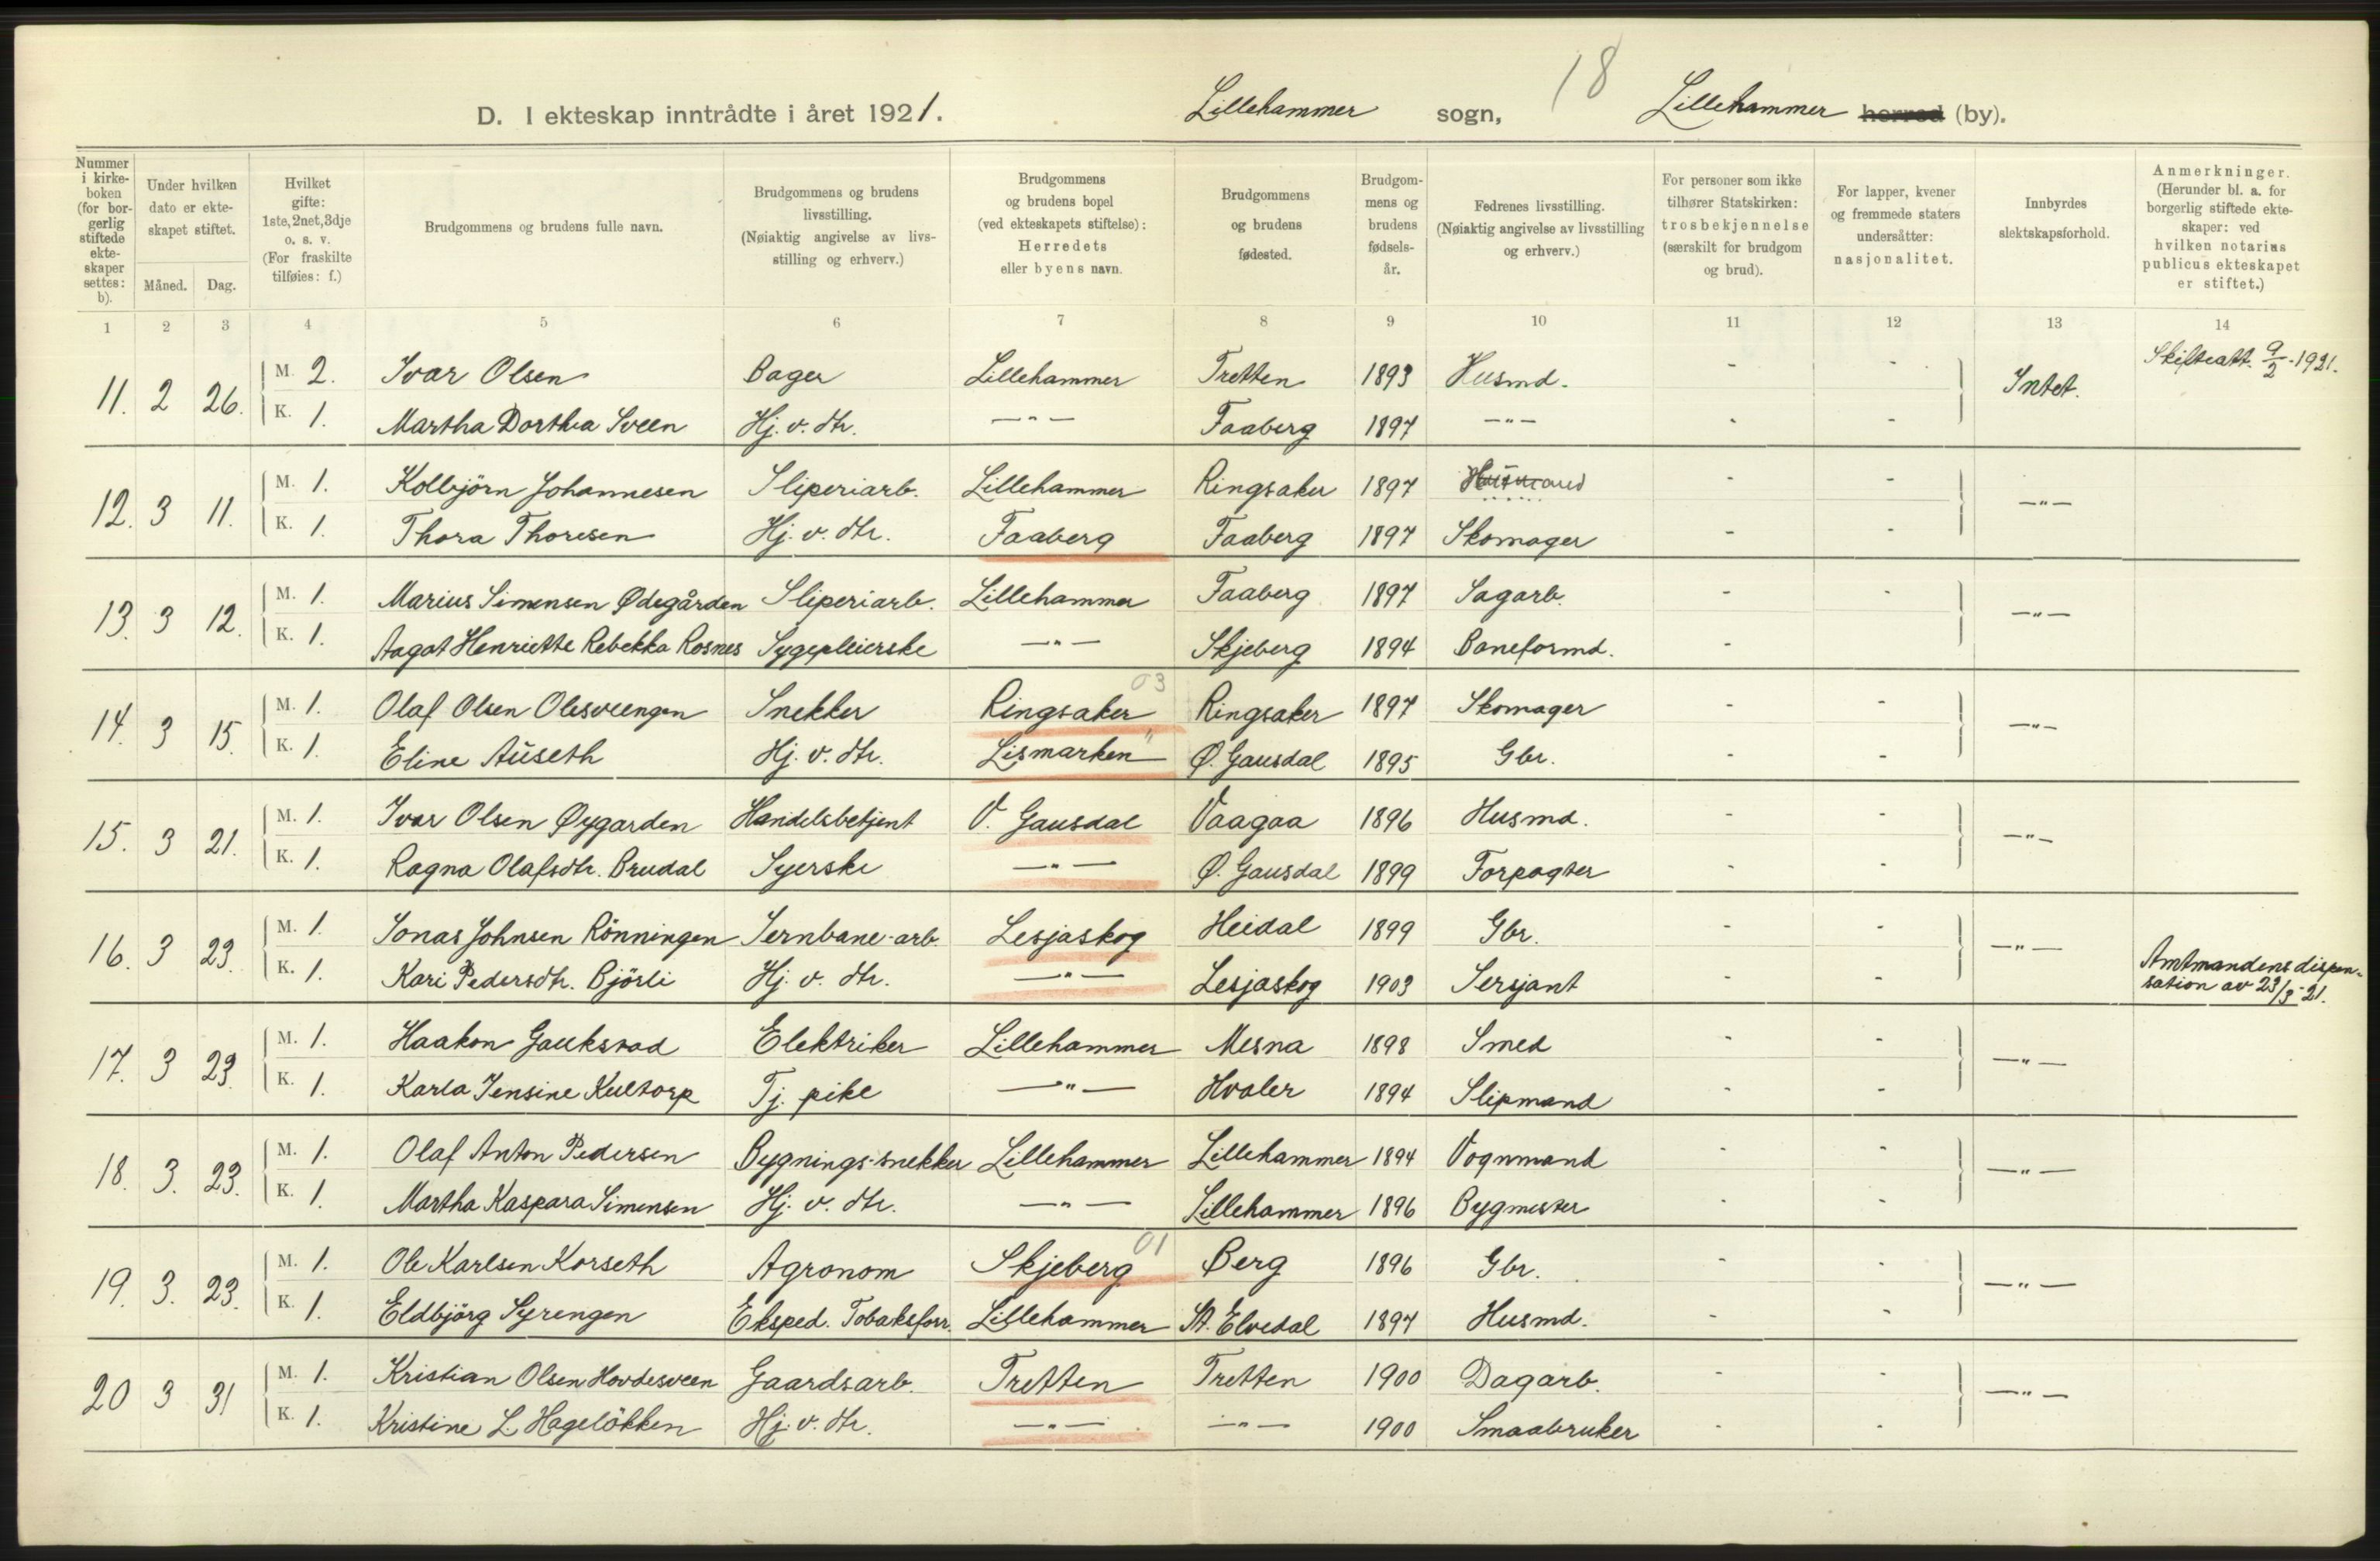 18
D. I ekteskap inntrådte i året 1921. Lillehammer sogn, Lillehammer herred (by).
Nummer i kirkeboken (for borgerlig stiftede ekteskaper settes: b). | Under hvilken dato er ekteskapet stiftet. Måned. Dag. | Hvilket gifte: 1ste, 2net, 3dje o. s. v. (For fraskilte tilføies: f.) | Brudgommens og brudens fulle navn. | Brudgommens og brudens livsstilling. (Nøiaktig angivelse av livsstilling og erhverv.) | Brudgommens og brudens bopel (ved ekteskapets stiftelse): Herredets eller byens navn. | Brudgommens og brudens fødested. | Brudgommens og brudens fødselsår. | Fedrenes livsstilling. (Nøiaktig angivelse av livsstilling og erhverv.) | For personer som ikke tilhører Statskirken: trosbekjennelse (særskilt for brudgom og brud). | For lapper, kvener og fremmede staters undersåtter: nasjonalitet. | Innbyrdes slektskapsforhold. | Anmerkninger. (Herunder bl. a. for borgerlig stiftede ekteskaper: ved hvilken notarius publicus ekteskapet er stiftet.)
1 2 3 4 5 6 7 8 9 10 11 12 13 14
11. 2 26. M. 2. Ivar Olsen Bager Lillehammer Tretten 1893 Husmd. - - Intet. Skifteatt. 9/2-1921.
K. 1. Martha Dorthea Sveen Hj. v. dtr. —"— Faaberg 1897 —"— - -
12. 3 11. M. 1. Kolbjörn Johannesen Sliperiarb. Lillehammer Ringsaker 1897 Husmand - - —"—
K. 1. Thora Thoresen Hj. v. dtr. Faaberg Faaberg 1897 Skomager - -
13. 3 12. M. 1. Marius Simensen Ødegården Sliperiarb. Lillehammer Faaberg 1897 Sagarb. - - —"—
K. 1. Aagot Henriette Rebekka Rosnes Sygepleierske —"— Skjeberg 1894 Baneformd. -
14. 3 15. M. 1. Olaf Olsen Olesveengen Snekker Ringsaker 03 Ringsaker 1897 Skomager - - —"—
K. 1. Eline Auseth Hj. v. dtr. Lismarken " Ø. Gausdal 1895 Gbr. - -
15. 3 21. M. 1. Ivar Olsen Øygarden Handelsbetjent V. Gausdal Vaagaa 1896 Husmd. - - —"—
K. 1. Ragna Olafsdtr. Brudal Syerske —"— Ø. Gausdal 1899 Forpagter - -
16. 3 23. M. 1. Jonas Johnsen Rönningen Jernbane-arb. Lesjaskog Heidal 1899 Gbr. - - —"— Amtmandens dispen-
K. 1. Kari Pedersdtr. Björli Hj. v. dtr. —"— Lesjaskog 1903 Sersjant - - sation av 23/3-21.
17. 3 23. M. 1. Haakon Gauksrad Elektriker Lillehammer Mesna 1898 Smed - - —"—
K. 1. Karla Jensine Kultorp Tj. pike —"— Hvaler 1894 Slipmand - -
18. 3. 23. M. 1. Olaf Anton Pedersen Bygnings-snekker Lillehammer Lillehammer 1894 Vognmand - - —"—
K. 1. Martha Kaspara Simensen Hj. v. dtr. —"— Lillehammer 1896 Bygmester - -
19. 3. 23. M. 1. Ole Karlsen Korseth Agronom Skjeberg 01 Berg 1896 Gbr. - - —"—
K. 1. Eldbjörg Syrengen Eksped. Tobaksforr. Lillehammer St. Elvedal 1897 Husmd. - -
20 3 31 M. 1. Kristian Olsen Hovdesveen Gaardsarb. Tretten Tretten 1900 Dagarb. - - —"—
K. 1. Kristine L. Hagelökken Hj. v. dtr. —"— —"— 1900 Smaabruker - -